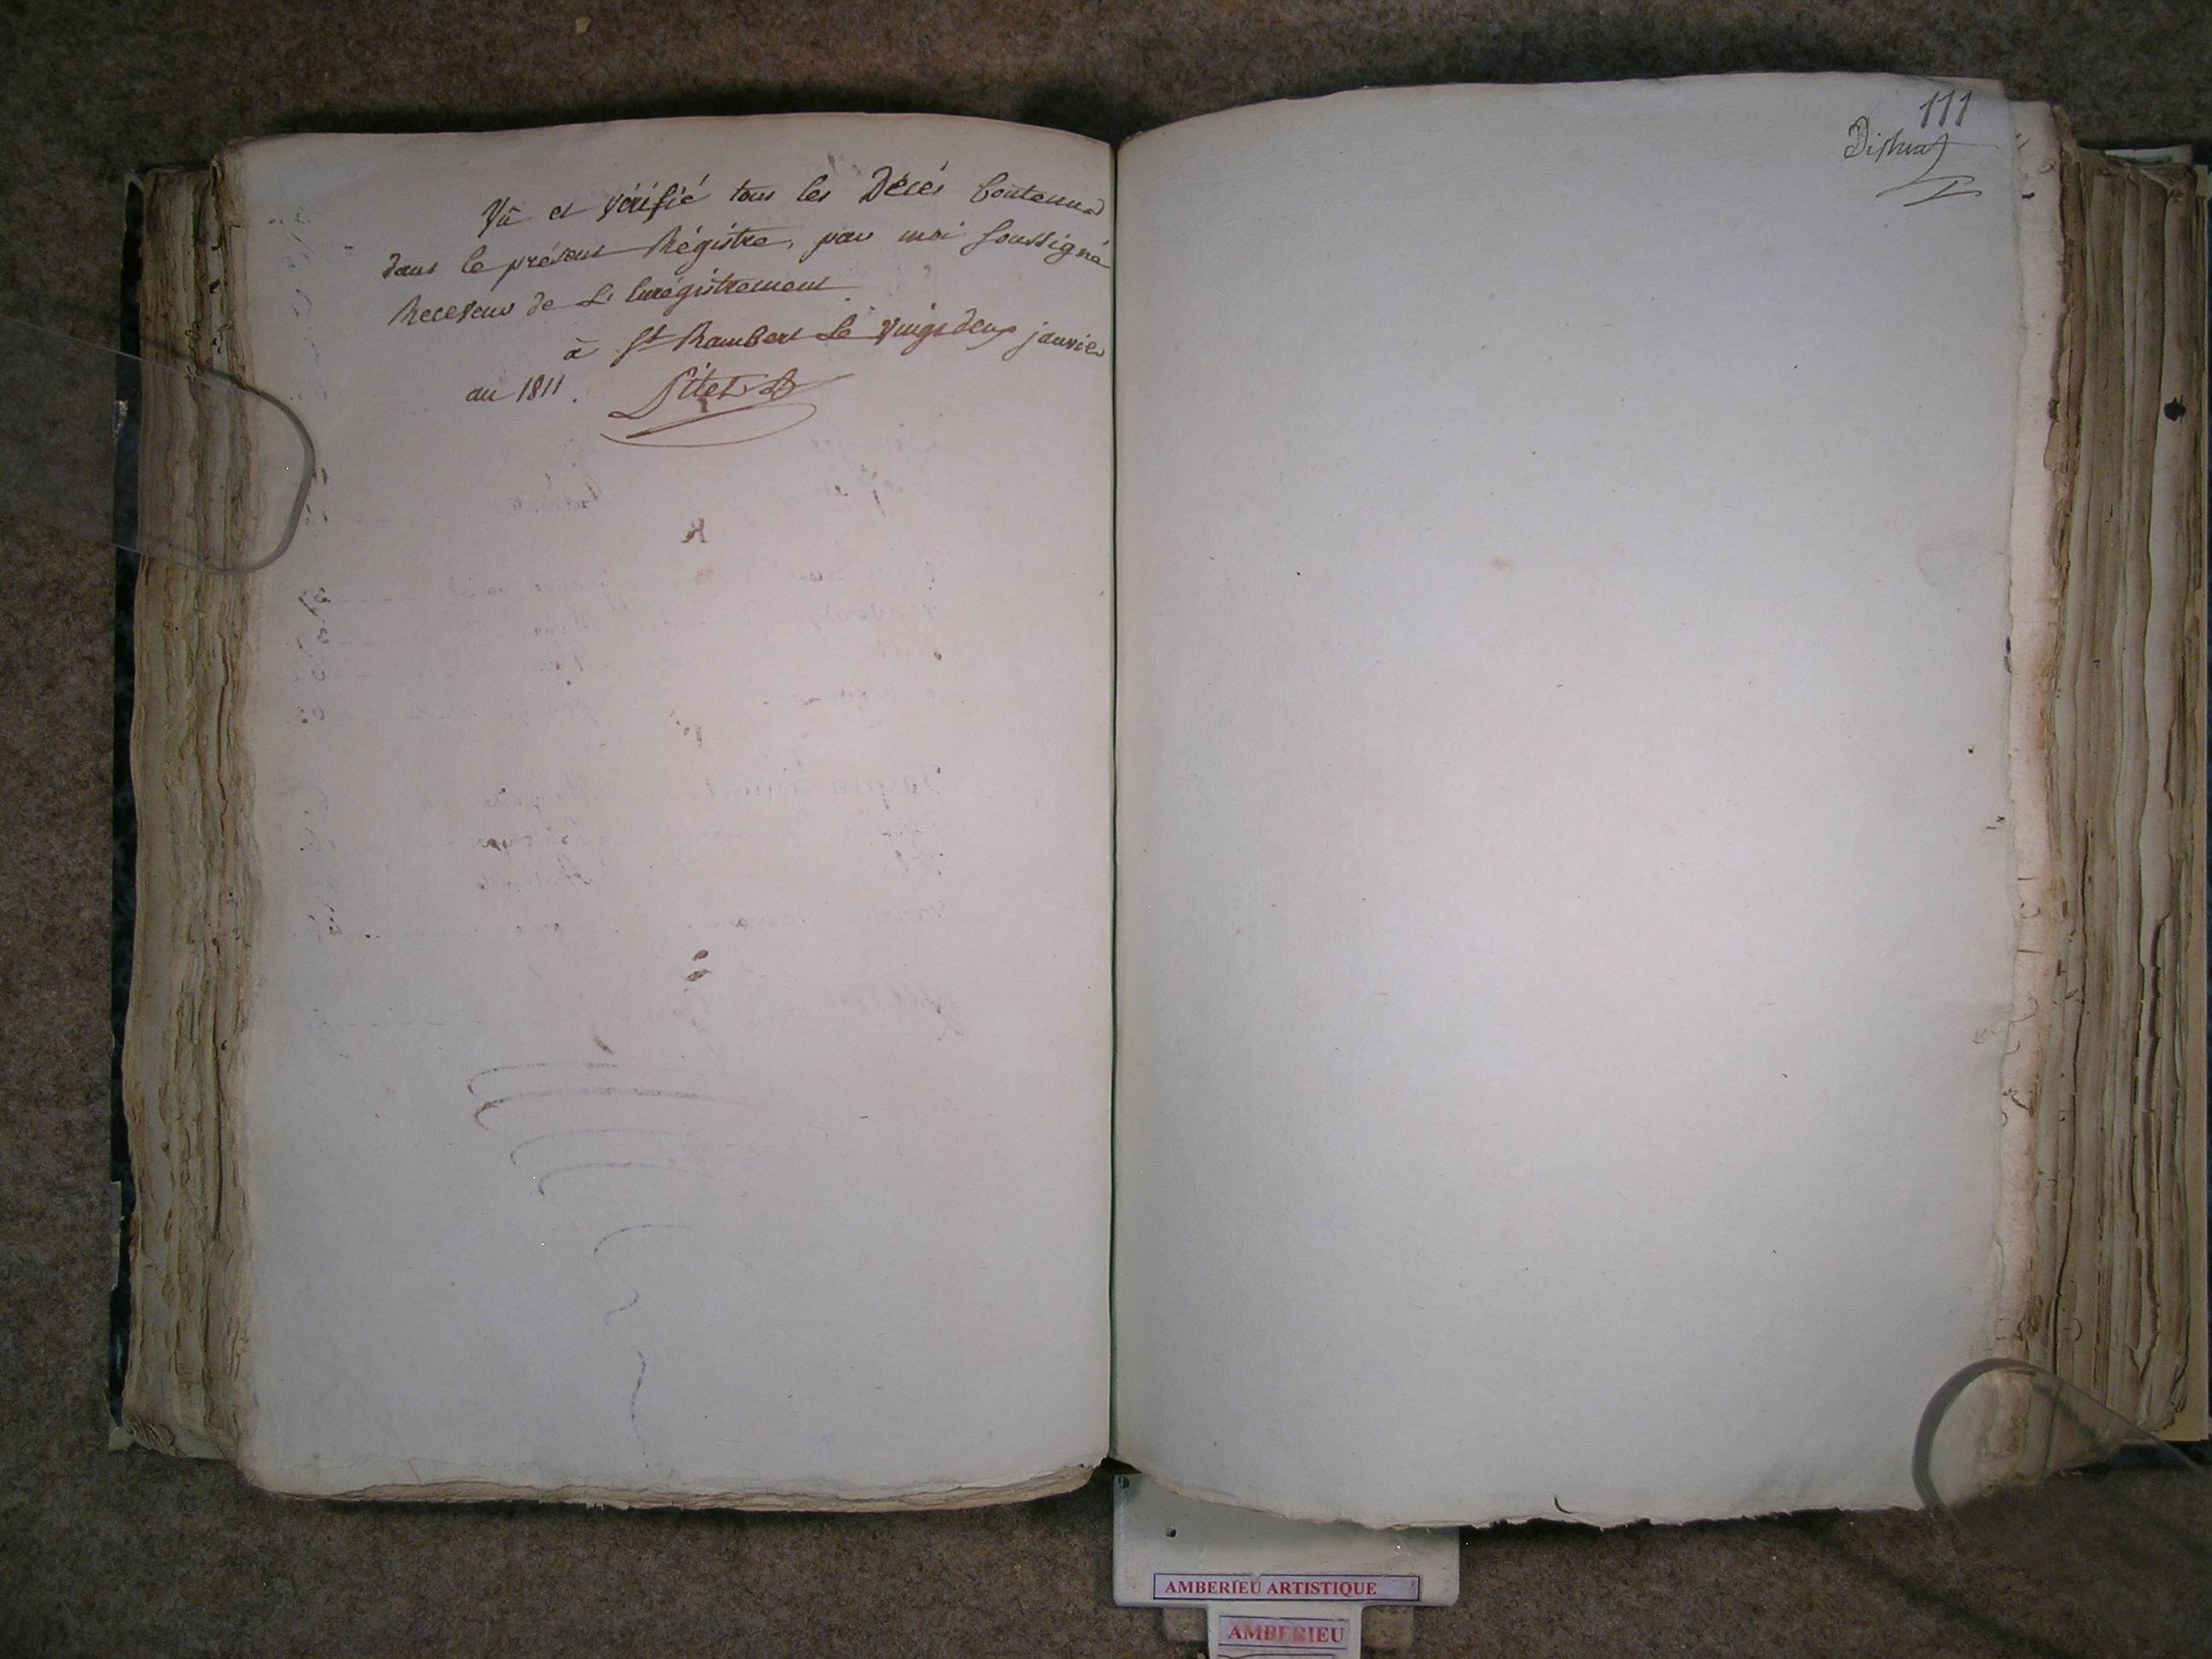 Vû et vérifié tous les Décés Contenus
dans le présent Régistre, par moi soussigné
Receveur de L'Enrégistrement
à St Rambert Le vingt deux janvier
an 1811.
111
AMBERIEU ARTISTIQUE
AMBERIEU